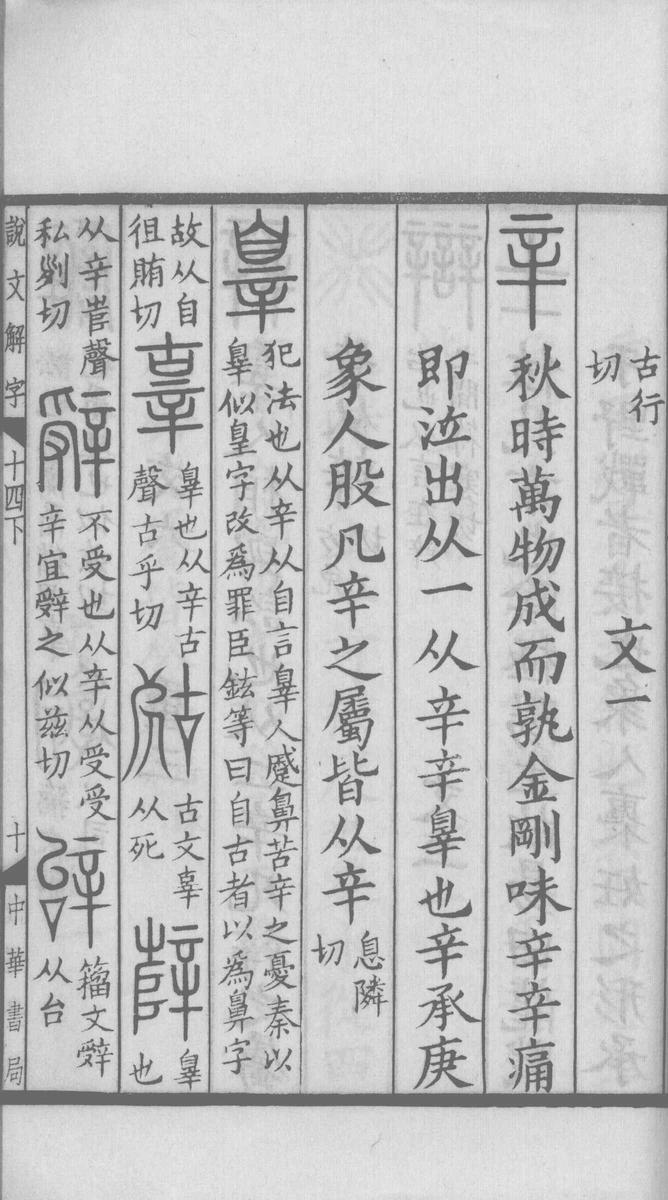 古行
切
文一
辛
秋時萬物成而孰金剛味辛辛痛
即泣出从一从䇂䇂辠也辛承庚
象人股凡辛之屬皆从辛
息隣
切
辠
犯法也从辛从自言辠人蹙鼻苦辛之憂秦以
辠似皇字改爲罪臣鉉等曰自古者以爲鼻字
故从自
徂賄切
辜
辠也从辛古
聲古乎切
古文辜
从死
辥
辠
也
从辛𡴎聲
私列切
辤
不受也从辛从受受
辛宜辤之似兹切
辝
籀文辤
从台
說文解字
十四下
十
中華書局